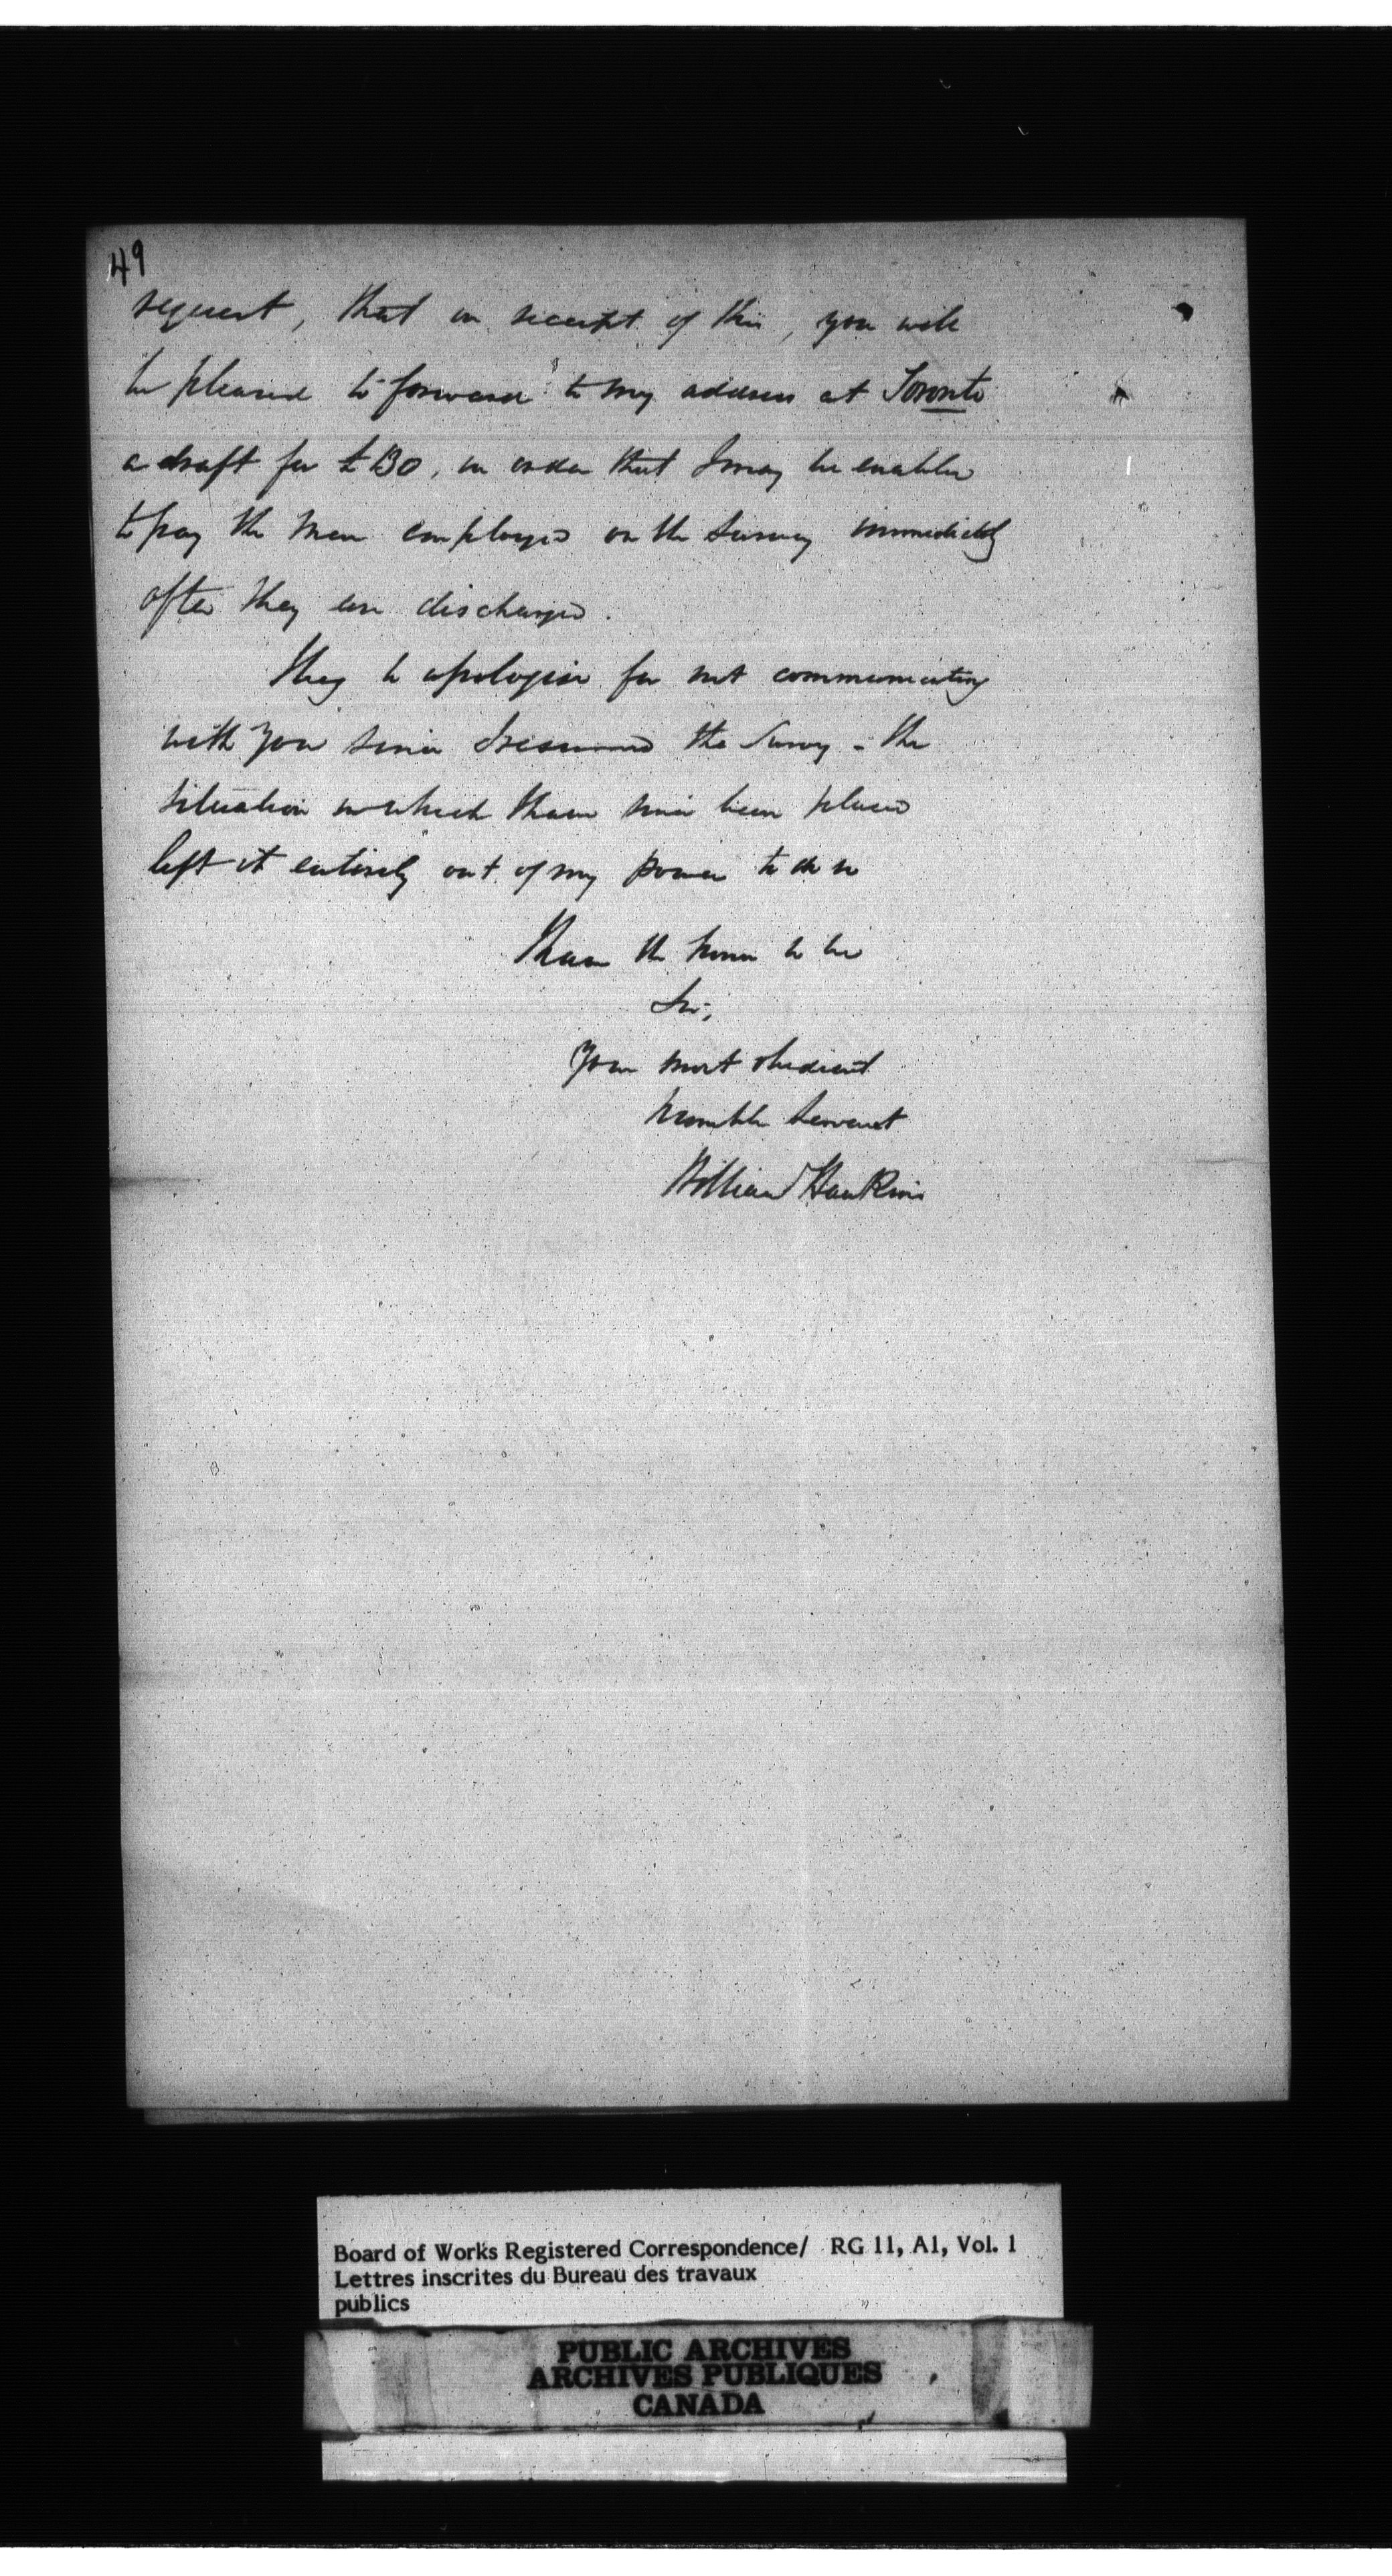 49
request, that on receipt of this, you will
be pleased to forward to my address at Toronto
a draft for £130, in order that I may be enabled
to pay the men employed on the Survey immediately
after they are discharged.
I beg to apologise for not communicating
with you since I resumed the Survey - the
situation in which I have since been placed
left it entirely out of my power to do so
I have the honor to be
Sir,
Your most obedient
humble Servant
William Hawkins
Board of Works Registered Correspondence/ RG 11, A1, Vol. 1
Lettres inscrites du Bureau des travaux
publics
PUBLIC ARCHIVES
ARCHIVES PUBLIQUES
CANADA